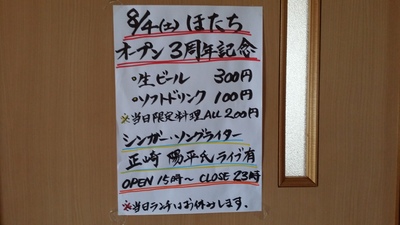 8/4(土) ほたち
オープン 3周年記念
○生ビール 300円
○ソフトドリンク 100円
※当日限定料理ALL 200円
シンガー・ソングライター
正崎 陽平氏ライブ有
OPEN 15時～ CLOSE 23時
※当日ランチはお休みします.